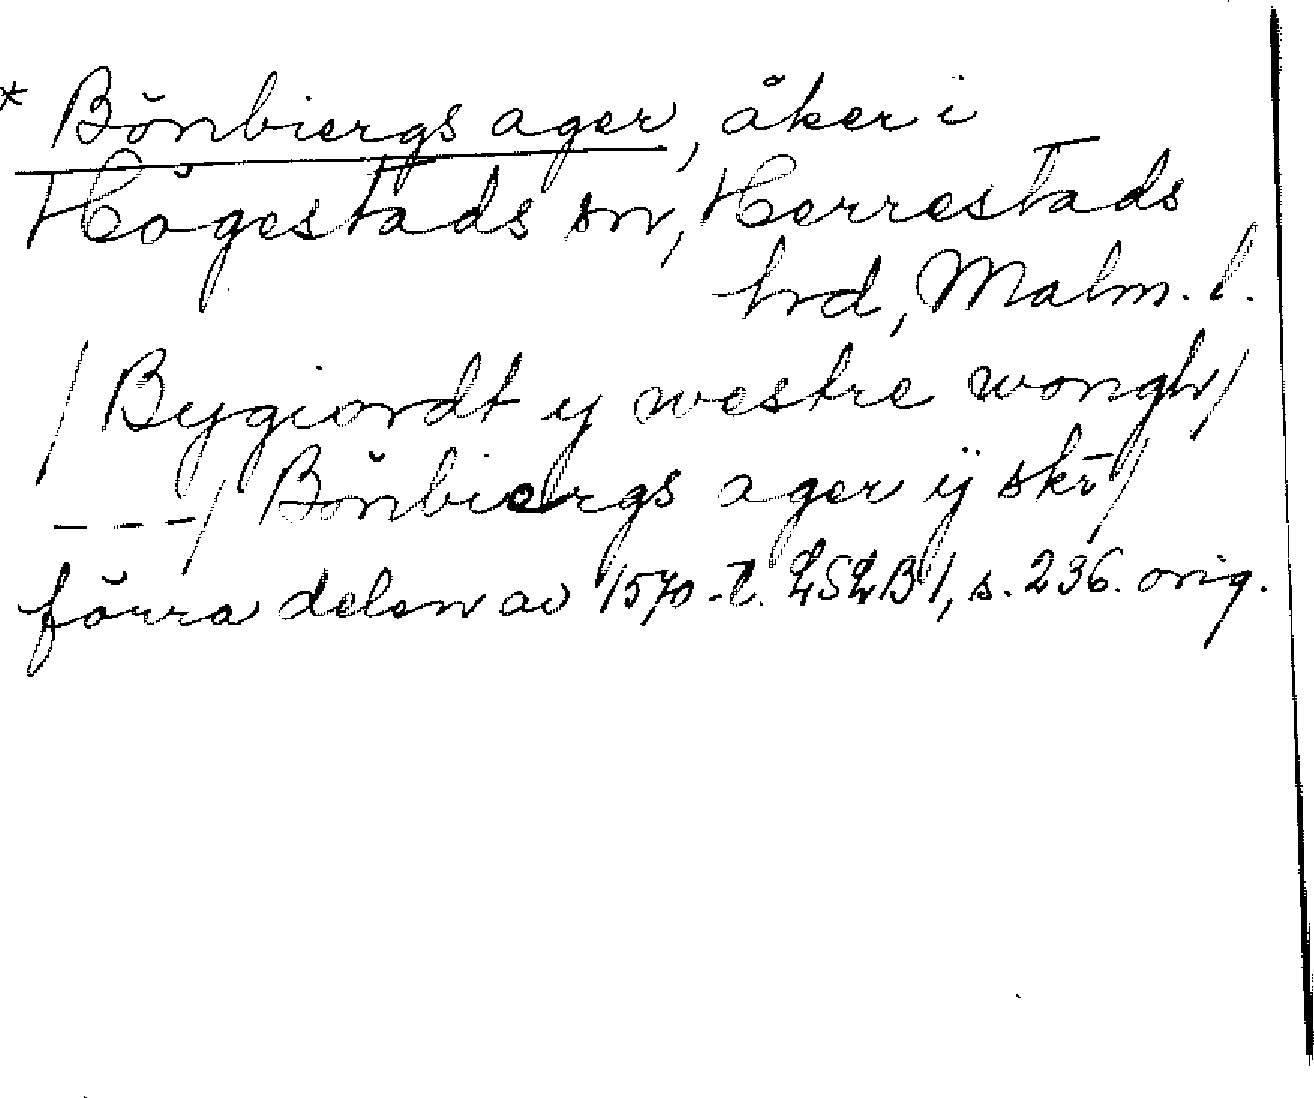 * Bönbiergs ager, åker i
Högestads sn, Herrestads
hrd, Malm. l.
/ Bygiordt y westre wongh/
---/ Bönbiergs ager ij skr̄ /
förra delen av 1570-t. LSLB 1, s. 236. orig.